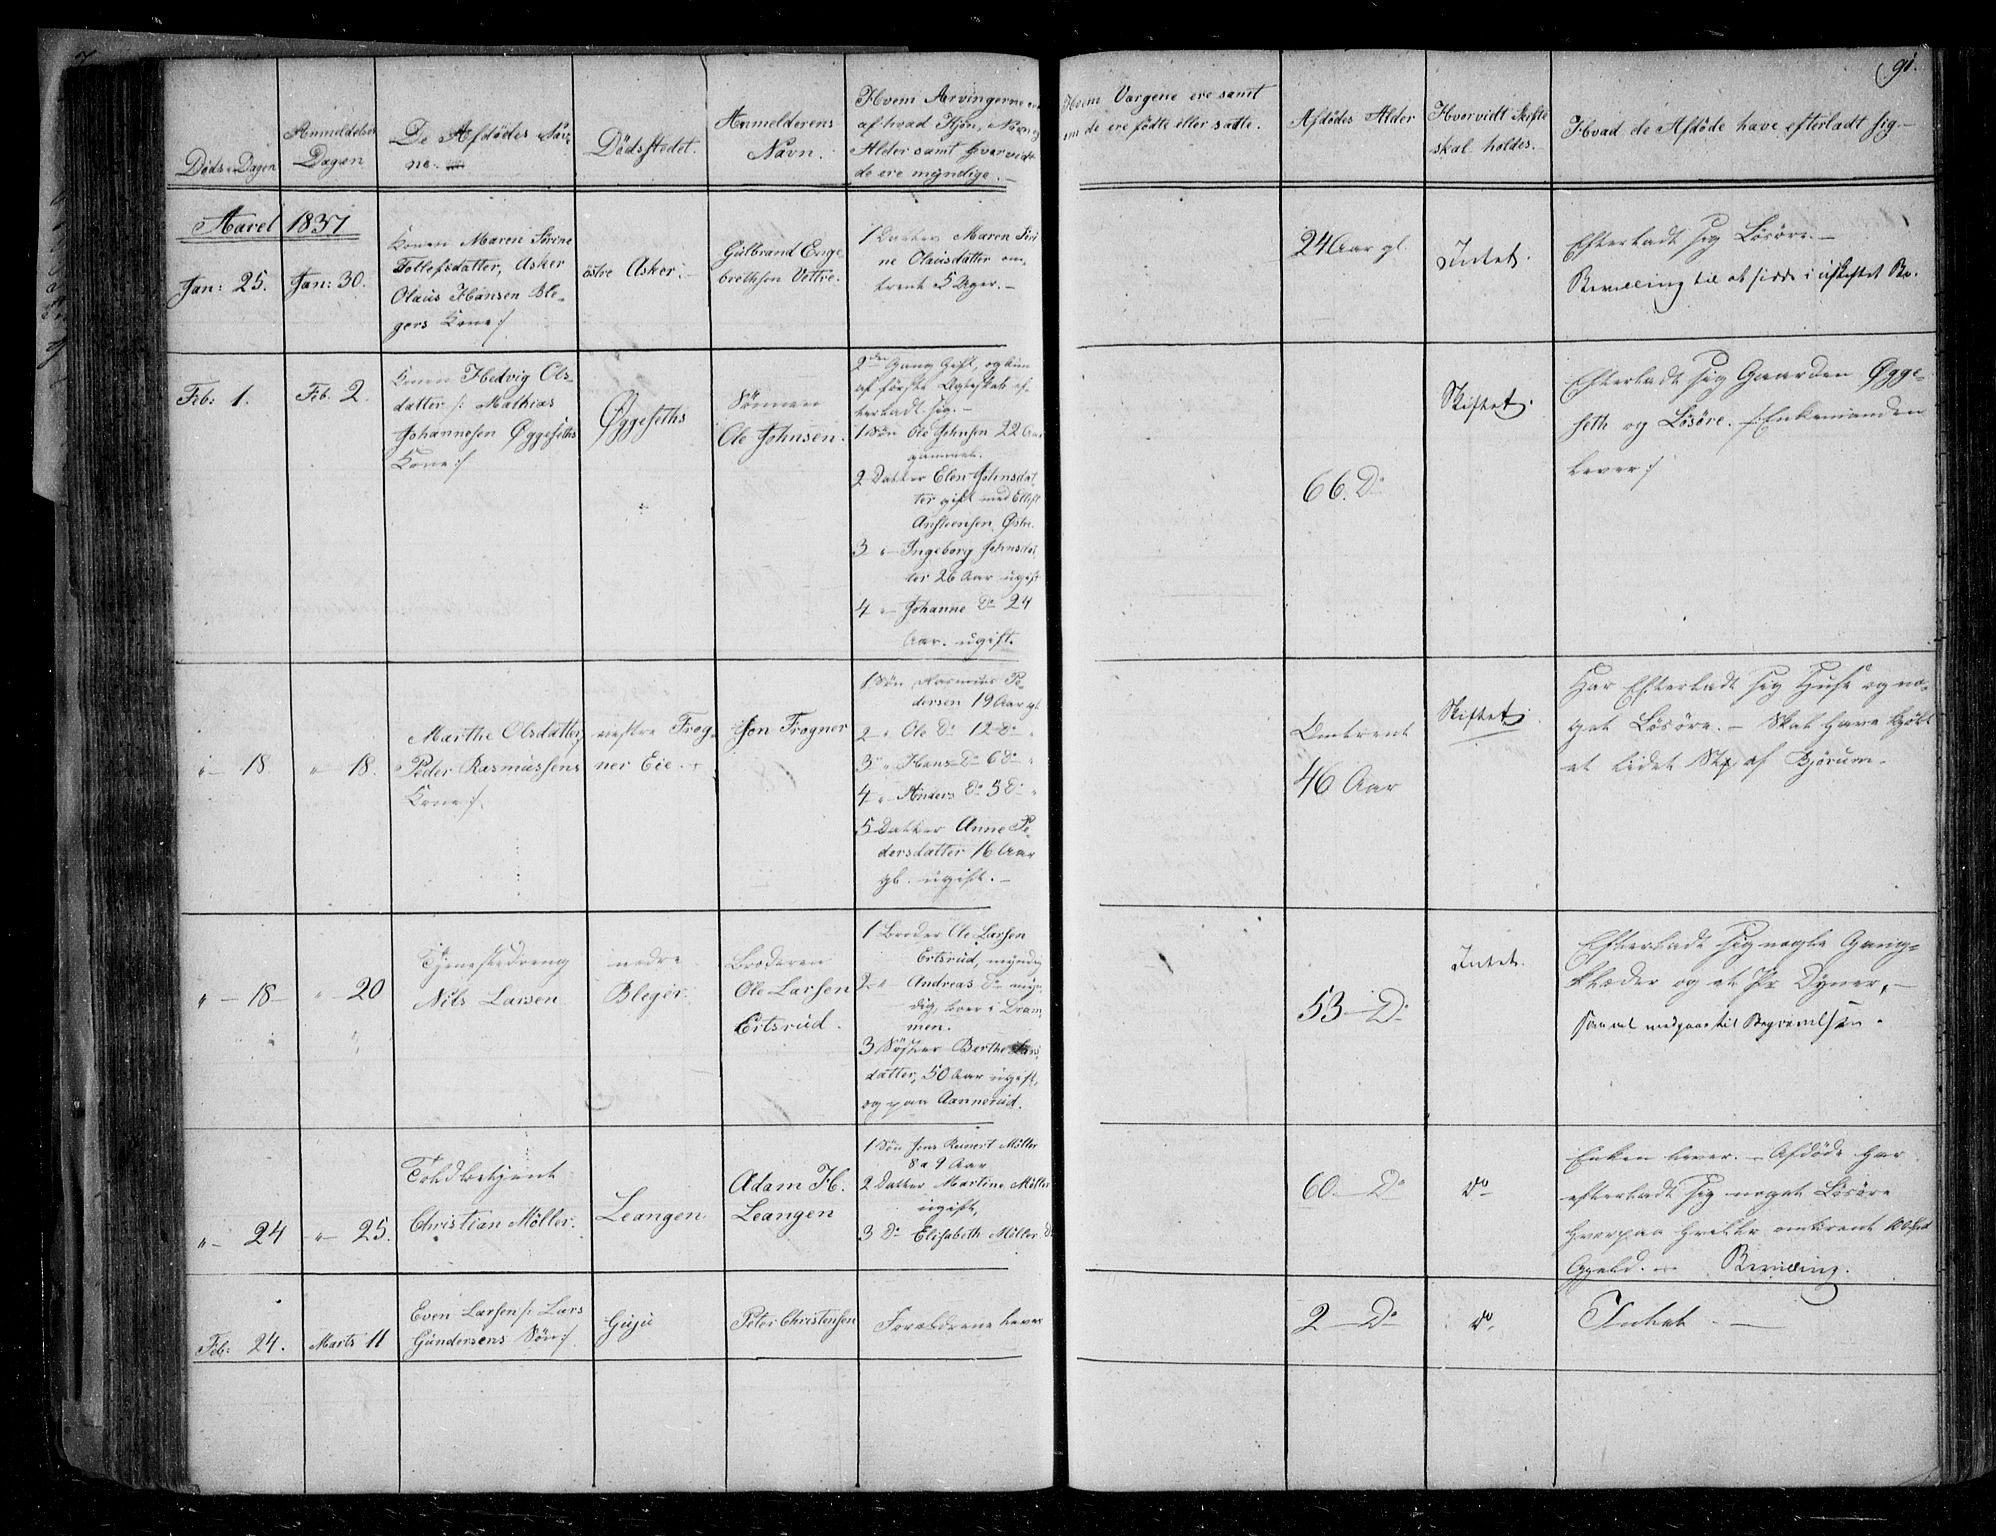 91.
Döds-Dagen
Anmeldelses
Dagen
De Afdödes Nav-
ne.
Dödsstedet.
Anmelderens
Navn.
Hvem Arvingerne ere
af hvad Kjön, Navn og
Alder samt hvorvidt
de ere myndige.
Hvem Værgene ere samt
om de ere födte eller satte.
Afdödes Alder
Hvorvidt Skifte
skal holdes.
Hvad de Afdöde have efterladt sig.
Aaret 1837
Jan: 25.
Jan: 30.
Konen Maren Sörine
Tollefsdatter, Asker
Olaus Hansen Ble-
gers Kone :/
östre Asker.
Gulbrand Enge
brethsen Vettre.
1 Datter Maren Siri
ne Olausdatter om
trent 5 Uger.
24 Aar gl.
Intet.
Efterladt sig Lösöre.
Bevilling til at sidde i uskiftet Bo.
Feb: 1.
Feb. 2.
Konen Hedvig Ols-
datter /: Mathias
Johannesen Øggeseths
Kone :/
Øggeseths
Sönnen
Ole Johnsen.
2den Gang Gift, og kun
af förste Ægteskab ef-
terladt sig.
1 Sön Ole Johnsen 22 Aar
gammel.
2 Datter Elen Johnsdat
ter gift med Ellef
Anstensen Østre
3 " Ingeborg Johnsdat
ter 26 Aar ugift
4 " Johanne Do 24
Aar. ugift.
66. Do
Skiftet.
Efterladt sig Gaarden Øgge-
seth og Lösöre. /: Enkemanden
lever :/
" 18
" 18.
Marthe Olsdatter,
Peder Rasmussens
Kone :/.
nestre Frog-
ner Eie.
Jon Frogner
1 Sön Rasmus Pe-
dersen 19 Aar gl
2 " Ole Do 12 Do "
3 " Hans Do 6 Do "
4 " Anders Do 3 Do "
5 Datter Anne Pe-
dersdatter 16 Aar
gl. ugift.
Omtrent
46 Aar
Skiftet.
Har Efterladt sig Huse og no-
get Lösöre. Skal have kjöbt
et lidet Stk af Bjørum.
" 18
" 20
Tjenestedreng
Nils Larsen
nedre
Bleger.
Broderen
Ole Larsen
Ertsrud.
1 Broder Ole Larsen
Ertsrud, myndig
2 " Andreas Do myn
dig, lever i Dram-
men.
3 Söster Berthe Lars
datter, 50 Aar ugift,
og paa Aannerud.
53 Do
Intet.
Efterladt sig nogle Gang-
klæder og et Pr Dyner,
som vel medgaar til Begravelsen.
" 24
" 25.
Toldbetjent
Christian Möller.
Leangen
Adam H.
Leangen
1 Sön Jens Reinert Möller
8 a 9 Aar
2 Datter Martine Möller
ugift,
3 Do Elisabeth Möller Do
60. Do
Do
Enken lever. Afdöde har
efterladt sig noget Lösöre
hvorpaa hefter omtrent 100 Spd
Gjeld. Bevilling.
Feb: 24.
Marts 11
Even Larsen /: Lars
Gundersens Sön :/
Guju
Peter Christensen
Forældrene lever
2 Do
Do
Intet.